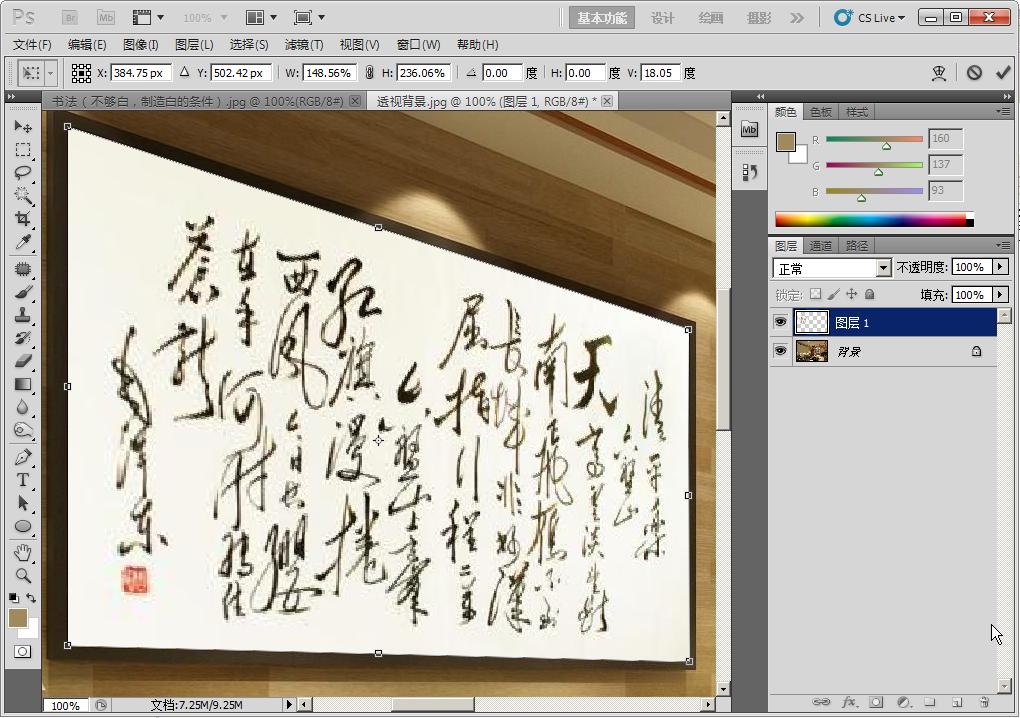 Ps
Br
Mb
100%
基本功能
设计
绘画
摄影
CS Live
文件(F) 编辑(E) 图像(I) 图层(L) 选择(S) 滤镜(T) 视图(V) 窗口(W) 帮助(H)
X: 384.75 px Y: 502.42 px W: 148.56% H: 236.06% 0.00 度 H: 0.00 度 V: 18.05 度
书法（不够白，制造白的条件）.jpg @ 100%(RGB/8#)
透视背景.jpg @ 100% (图层 1, RGB/8#) *
清平樂
六盤山
天高雲淡望斷
南飛雁不到
長城非好漢
屈指行程二萬
六盤山上高峰
紅旗漫捲
西風今日長纓
在手
何時縛住
蒼龍
毛澤東
Mb
颜色 色板 样式
R 160
G 137
B 93
图层 通道 路径
正常 不透明度: 100%
锁定: 填充: 100%
图层 1
背景
fx
T
100% 文档:7.25M/9.25M